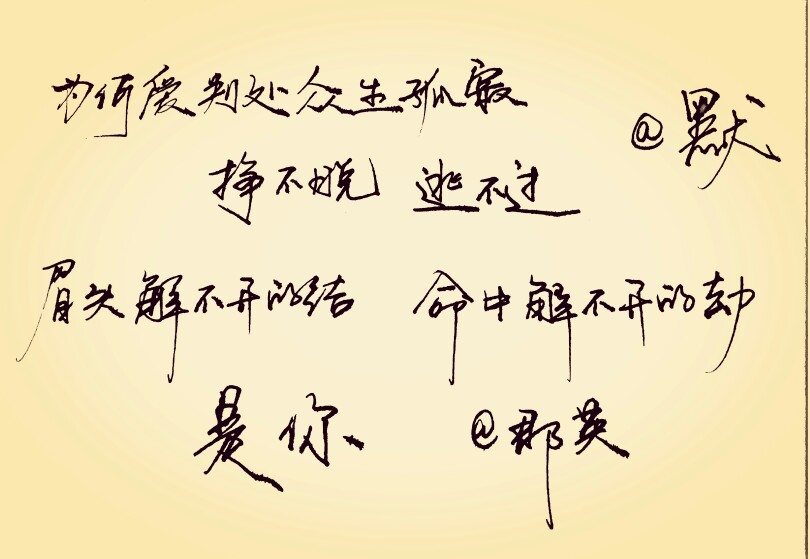 为何爱判处众生孤寂
@默
挣不脱 逃不过
眉头解不开的结 命中解不开的劫
是你 @那英